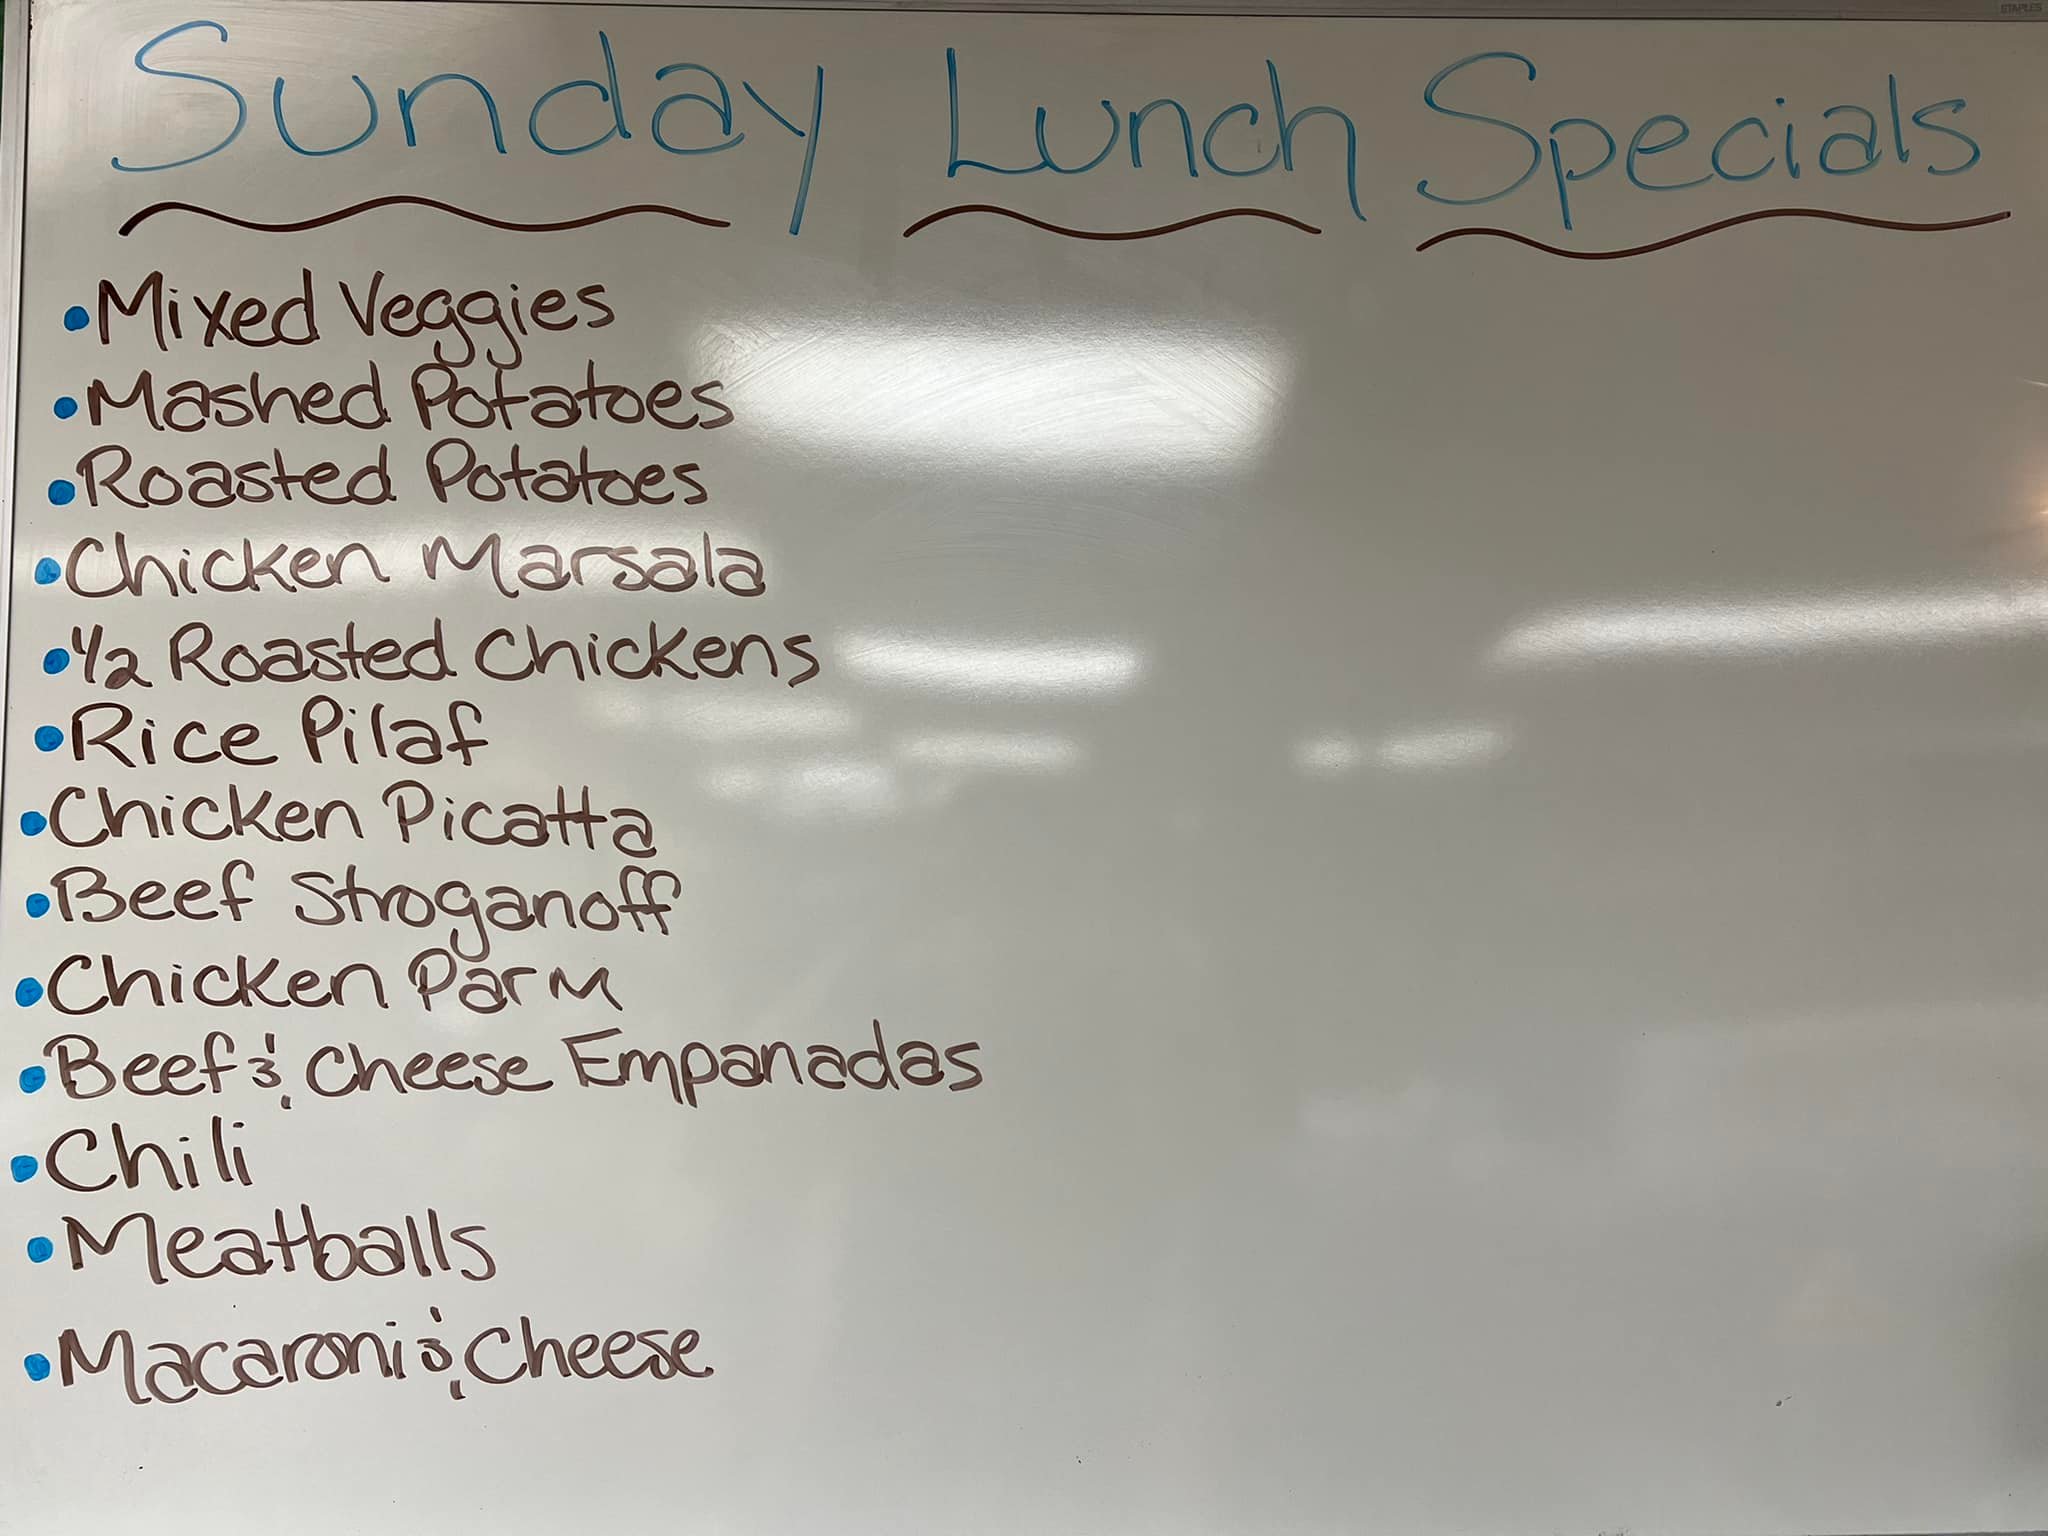 STAPLES
Sunday Lunch Specials
• Mixed Veggies
• Mashed Potatoes
• Roasted Potatoes
• Chicken Marsala
• 1/2 Roasted Chickens
• Rice Pilaf
• Chicken Picatta
• Beef Stroganoff
• Chicken Parm
• Beef & Cheese Empanadas
• Chili
• Meatballs
• Macaroni & Cheese